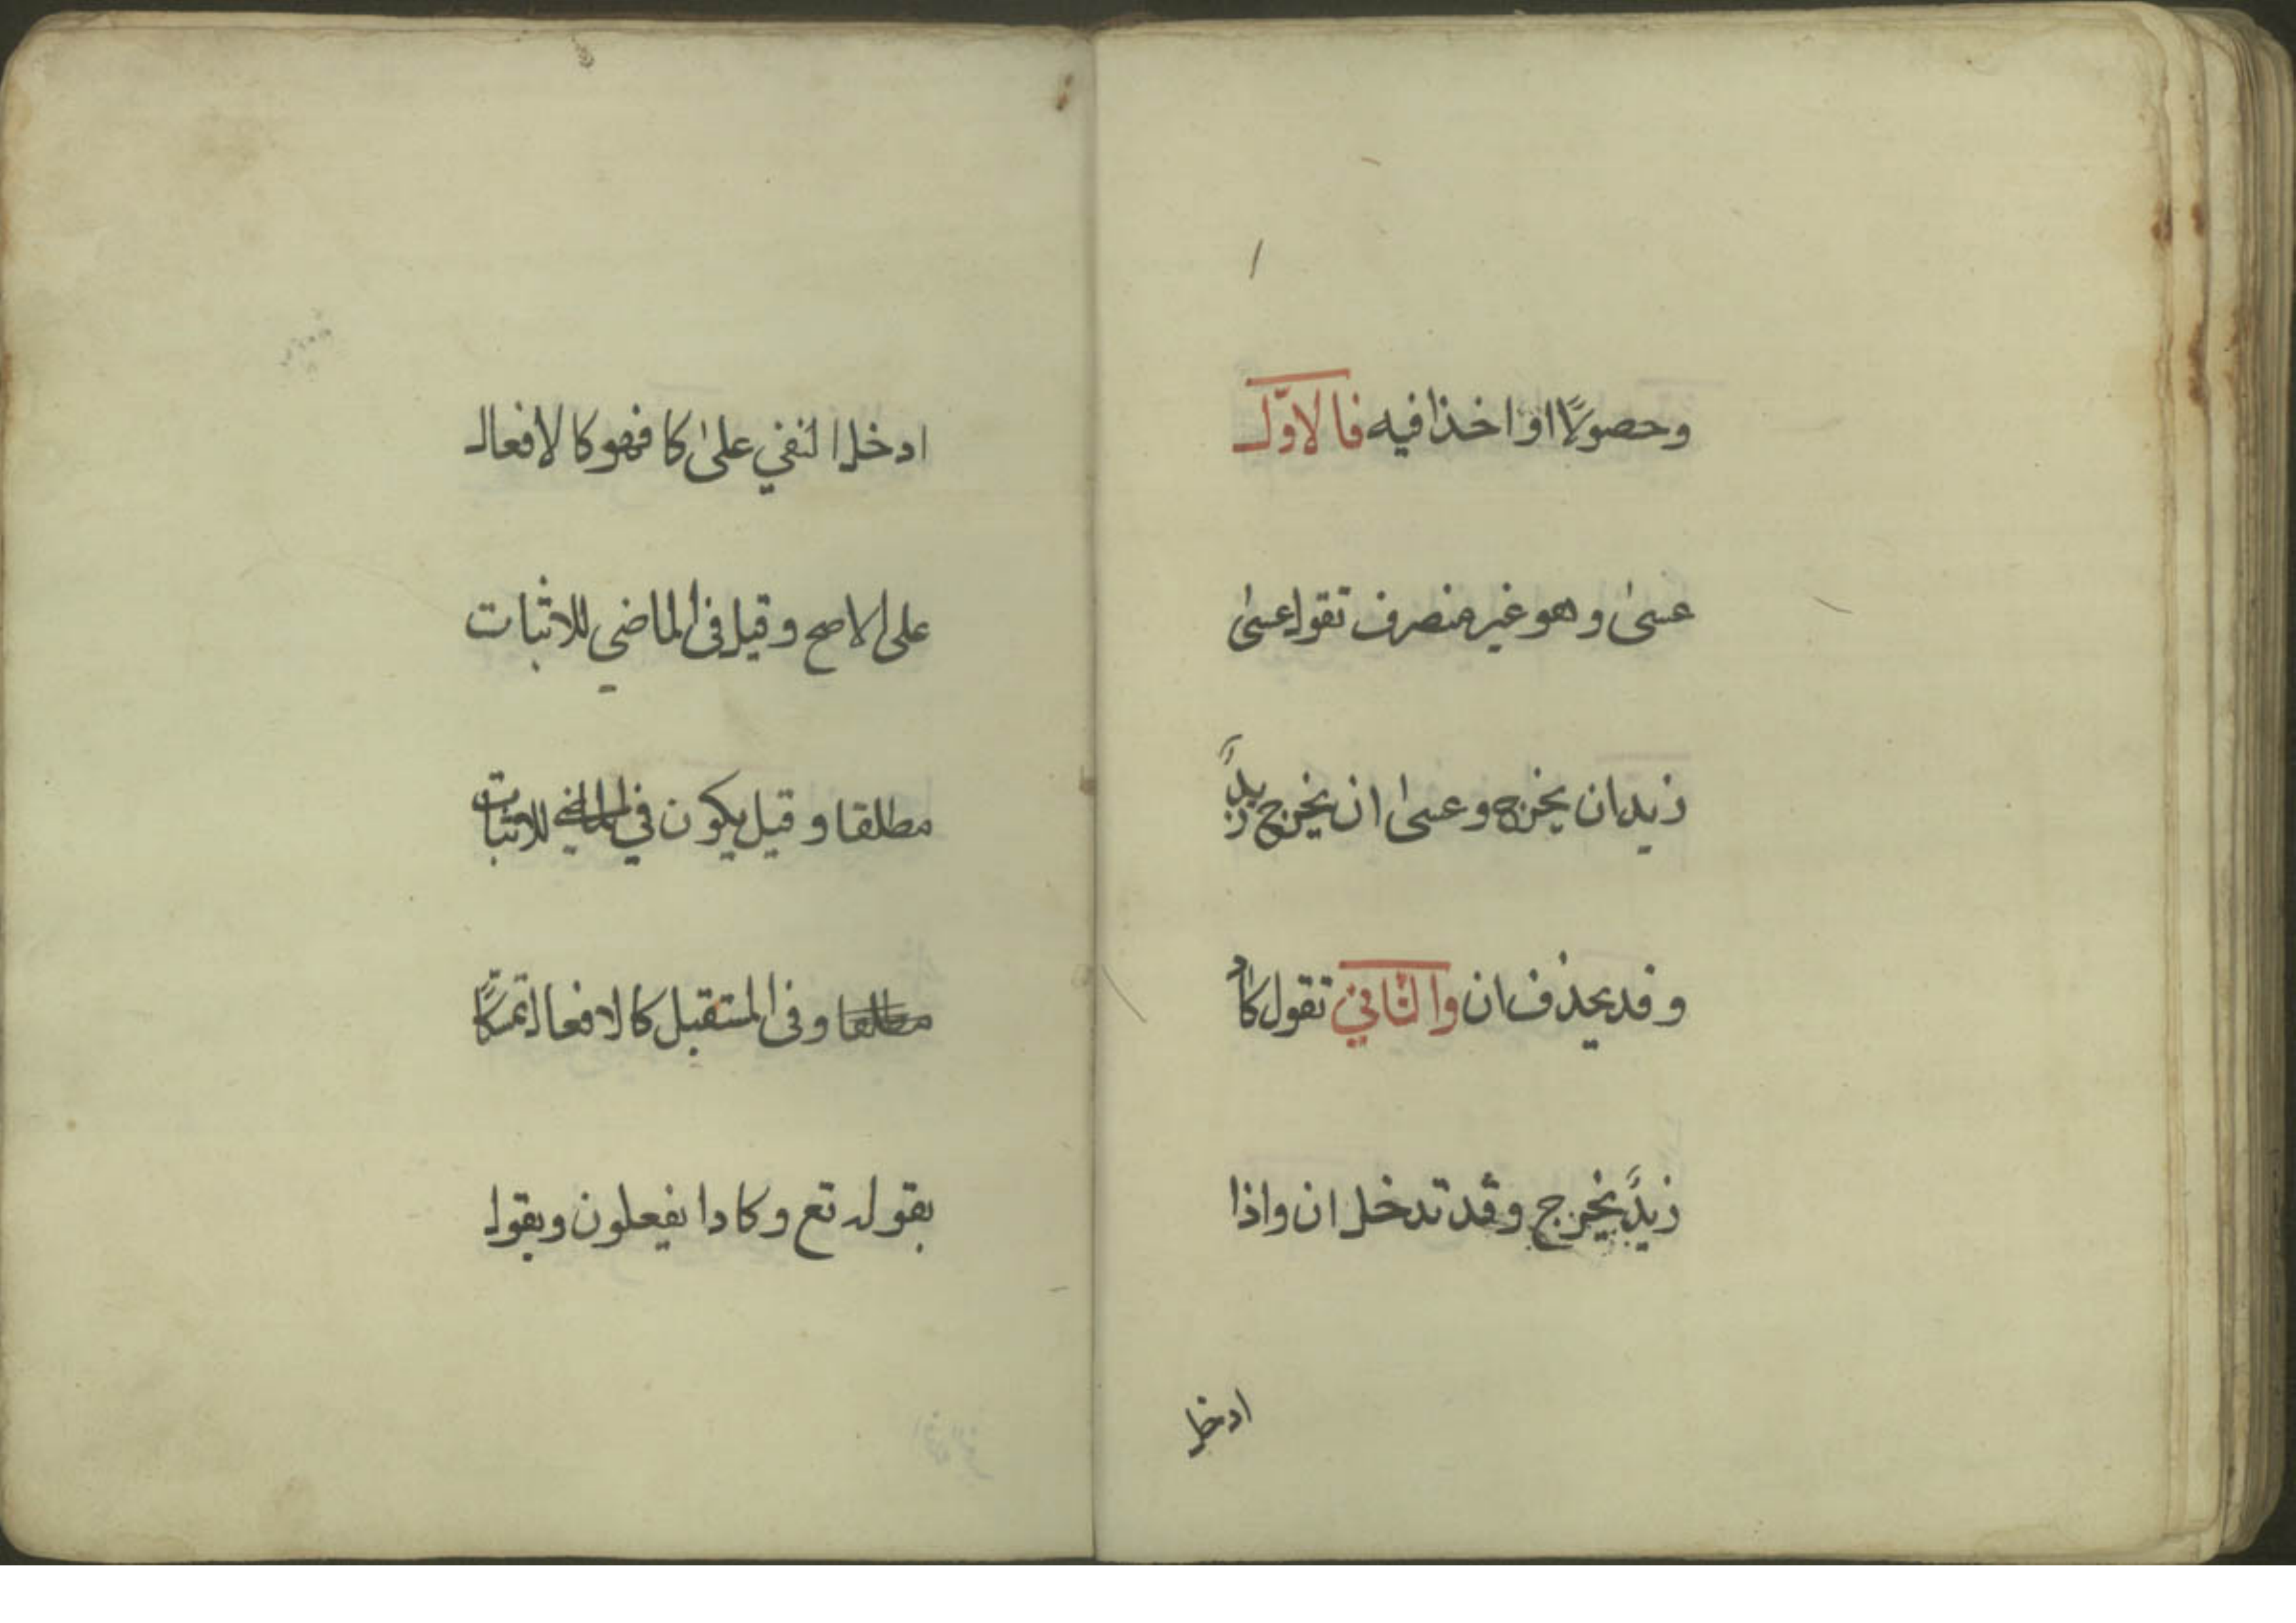 وحصولًا او اخذا فيه فالاوّل
عسىٰ وهو غير منصرف تقول عسىٰ
زيد ان يخرج وعسىٰ ان يخرج زيدٌ
وقد يحذف ان والثاني تقول كاد
زيدٌ يخرج وقد تدخل ان واذا
ادخل
ادخل النفي علىٰ كا فهو كالافعال
على الاصح وقيل فى الماضي للاثبات
مطلقا وقيل يكون في الماضي للاثبات
مطلقا وفى المستقبل كالافعال تمسّكًا
بقوله تع وكادا يفعلون وبقول